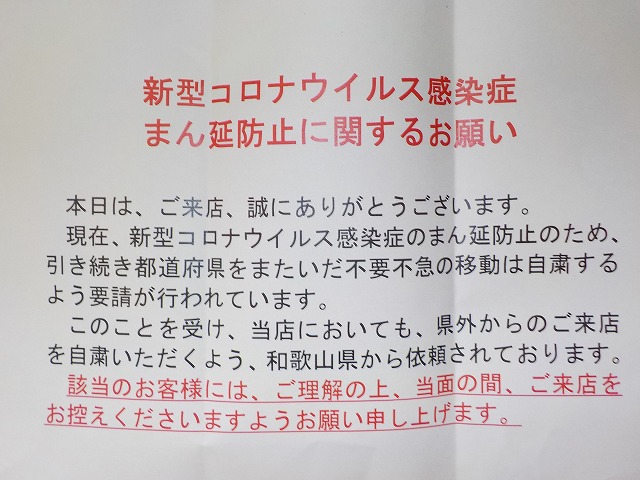 新型コロナウイルス感染症
まん延防止に関するお願い
本日は、ご来店、誠にありがとうございます。
現在、新型コロナウイルス感染症のまん延防止のため、
引き続き都道府県をまたいだ不要不急の移動は自粛する
よう要請が行われています。
このことを受け、当店においても、県外からのご来店
を自粛いただくよう、和歌山県から依頼されております。
該当のお客様には、ご理解の上、当面の間、ご来店を
お控えくださいますようお願い申し上げます。